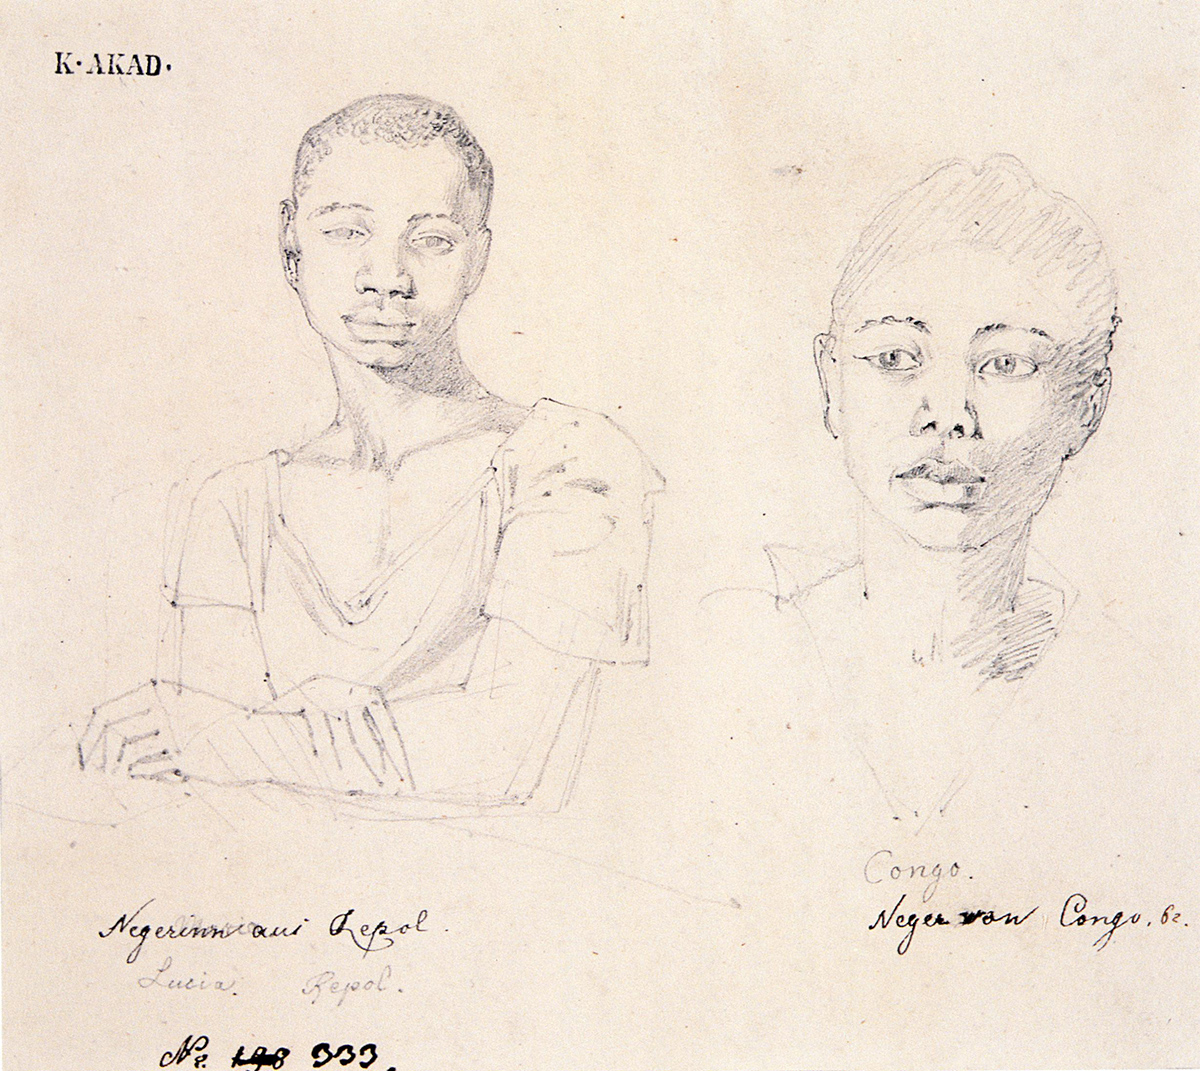 K·AKAD·
Negerinn aus Repol.
Lucia. Repol.
Congo.
Neger von Congo.
Nr. 333.